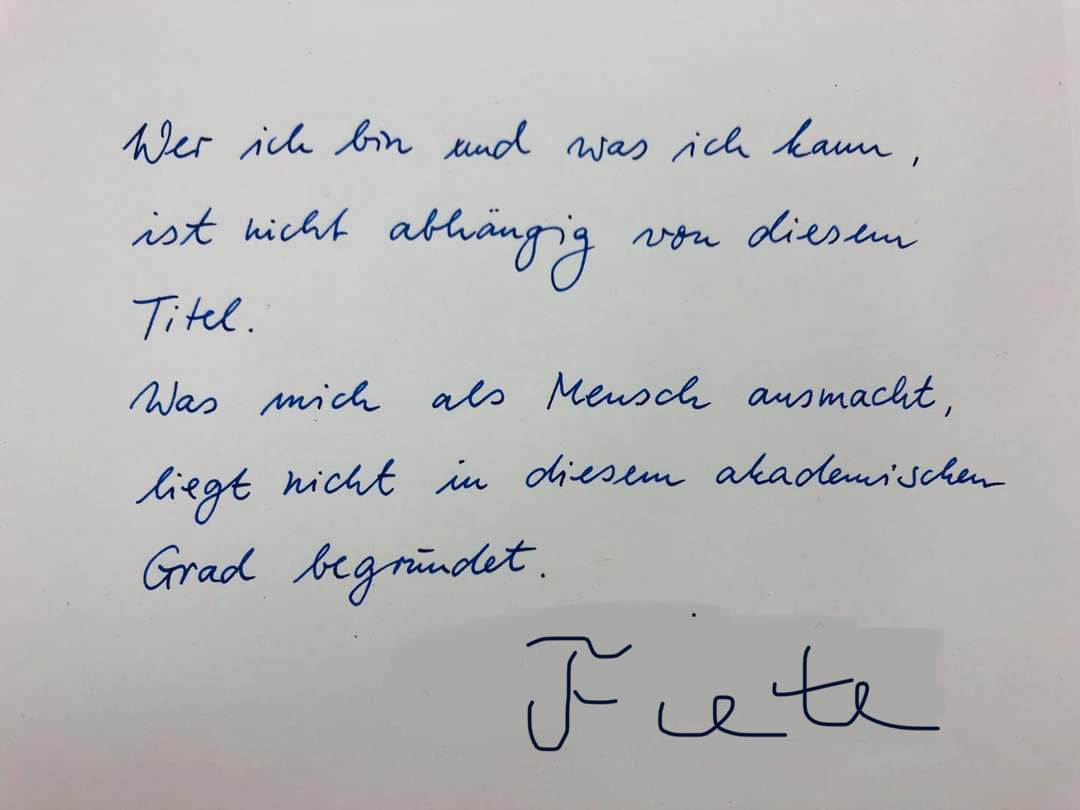 Wer ich bin und was ich kann,
ist nicht abhängig von diesem
Titel.
Was mich als Mensch ausmacht,
liegt nicht in diesem akademischen
Grad begründet.
Fiete